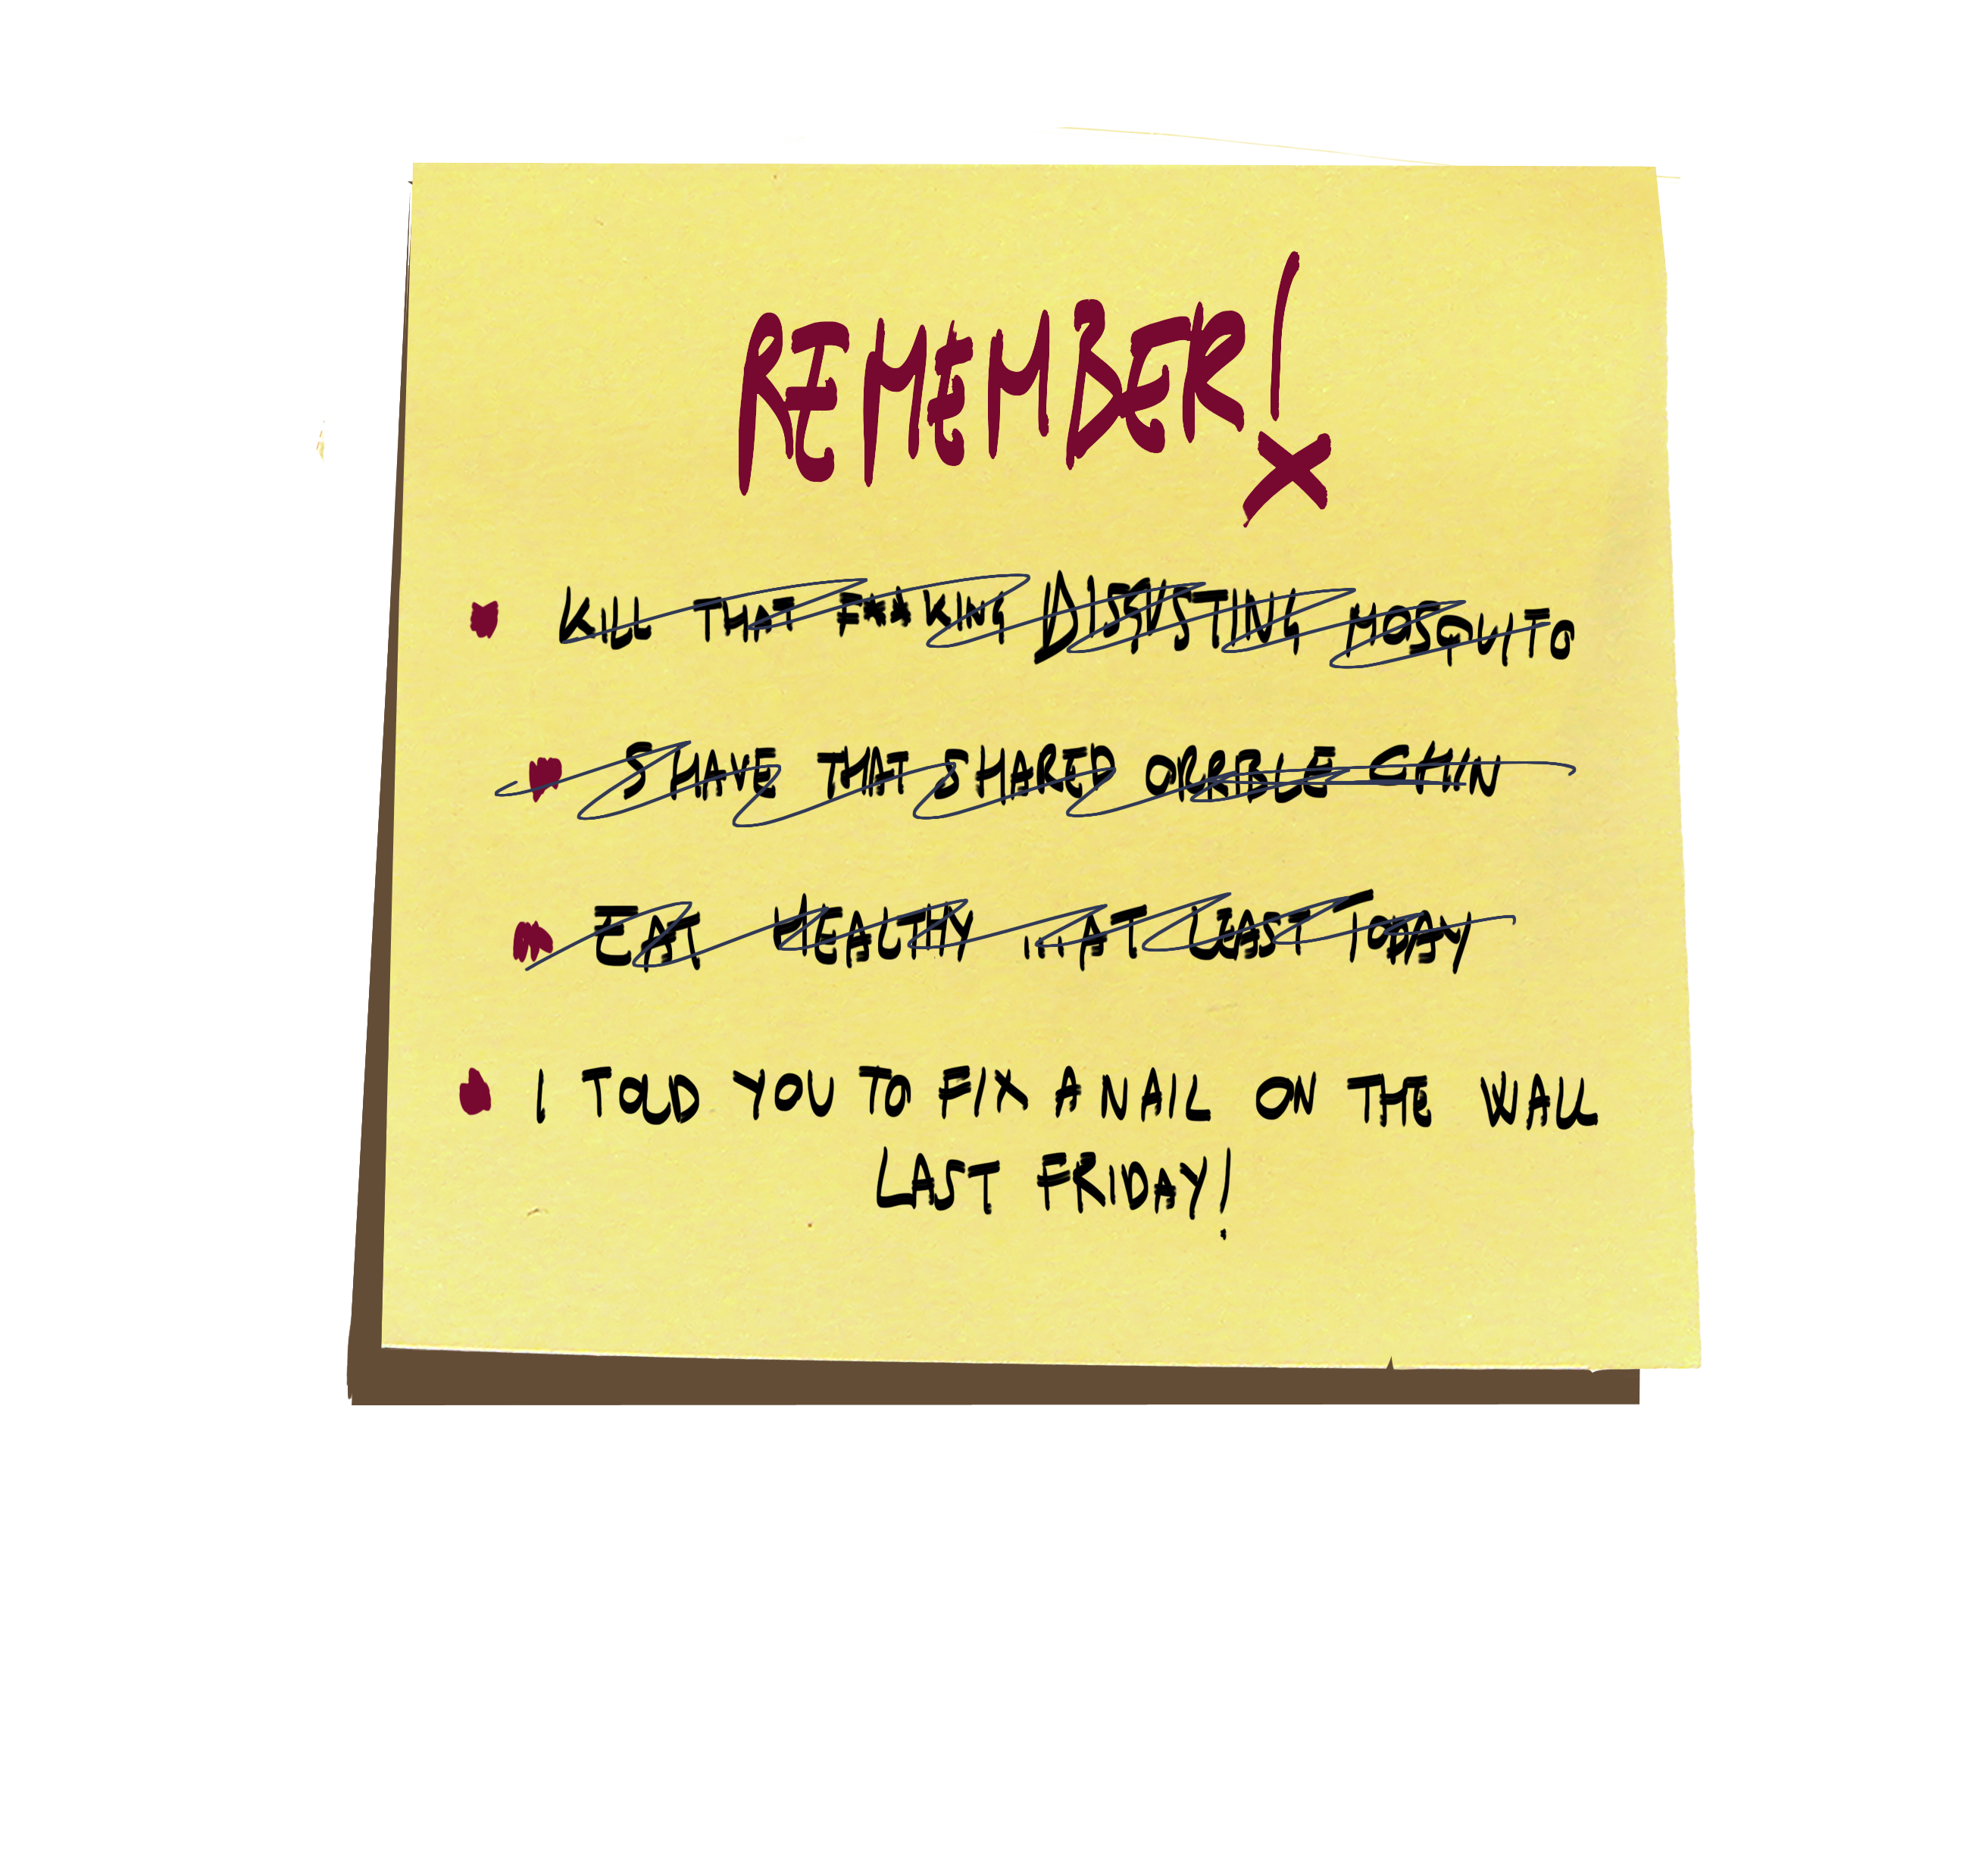 REMEMBER!
KILL THAT F**KING DISGUSTING MOSQUITO
SHAVE THAT SHARED ORRIBLE CHIN
EAT HEALTHY ...AT LEAST TODAY
I TOLD YOU TO FIX A NAIL ON THE WALL
LAST FRIDAY!